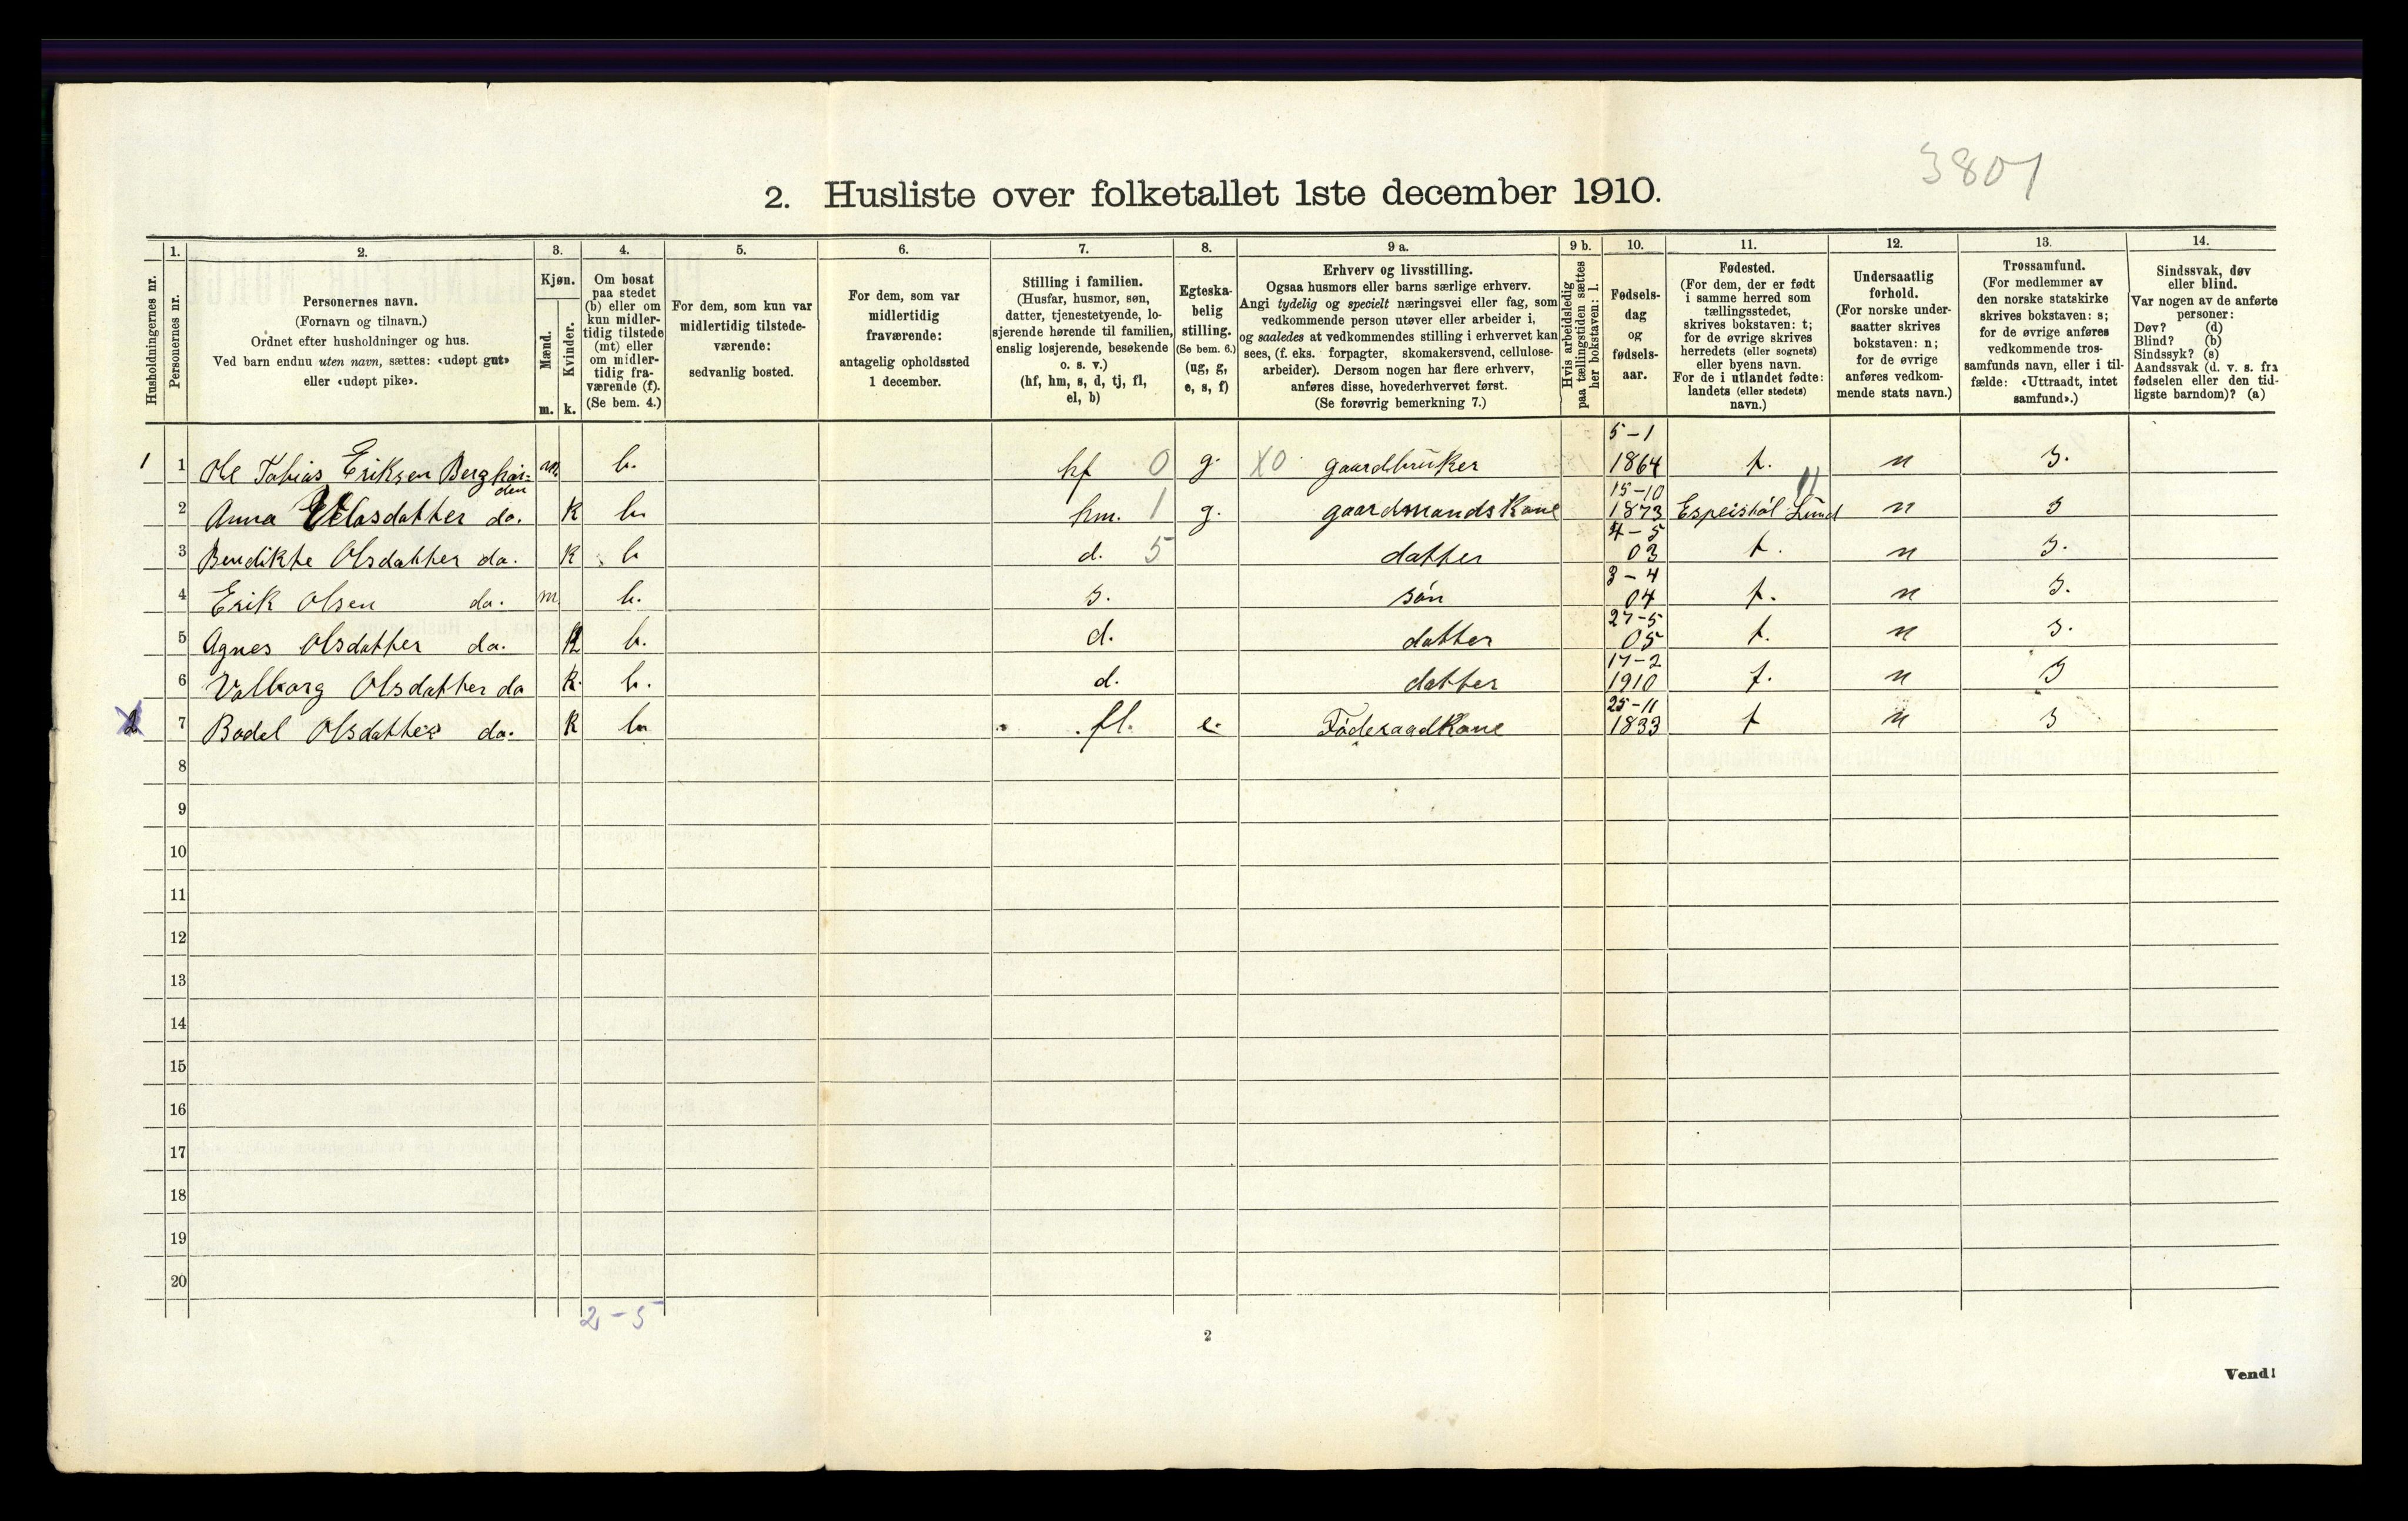 3801
2. Husliste over folketallet 1ste december 1910.
Husholdningernes nr.
1.
Personernes nr.
2.
Personernes navn.
(Fornavn og tilnavn.)
Ordnet efter husholdninger og hus.
Ved barn endnu uten navn, sættes: «udøpt gut»
eller «udøpt pike».
3.
Kjøn.
Mænd.
Kvinder.
m. k.
4.
Om bosat
paa stedet
(b) eller om
kun midler-
tidig tilstede
(mt) eller
om midler-
tidig fra-
værende (f).
(Se bem. 4.)
5.
For dem, som kun var
midlertidig tilstede-
værende:
sedvanlig bosted.
6.
For dem, som var
midlertidig
fraværende:
antagelig opholdssted
1 december.
7.
Stilling i familien.
(Husfar, husmor, søn,
datter, tjenestetyende, lo-
sjerende hørende til familien,
enslig losjerende, besøkende
o. s. v.)
(hf, hm, s, d, tj, fl,
el, b)
8.
Egteska-
belig
stilling.
(Se bem. 6.)
(ug, g,
e, s, f)
9 a.
Erhverv og livsstilling.
Ogsaa husmors eller barns særlige erhverv.
Angi tydelig og specielt næringsvei eller fag, som
vedkommende person utøver eller arbeider i,
og saaledes at vedkommendes stilling i erhvervet kan
sees, (f. eks. forpagter, skomakersvend, cellulose-
arbeider). Dersom nogen har flere erhverv,
anføres disse, hovederhvervet først.
(Se forøvrig bemerkning 7.)
9 b.
Hvis arbeidsledig
paa tællingstiden sættes
her bokstaven: l.
10.
Fødsels-
dag
og
fødsels-
aar.
11.
Fødested.
(For dem, der er født
i samme herred som
tællingsstedet,
skrives bokstaven: t;
for de øvrige skrives
herredets (eller sognets)
eller byens navn.
For de i utlandet fødte:
landets (eller stedets)
navn.)
12.
Undersaatlig
forhold.
(For norske under-
saatter skrives
bokstaven: n;
for de øvrige
anføres vedkom-
mende stats navn.)
13.
Trossamfund.
(For medlemmer av
den norske statskirke
skrives bokstaven: s;
for de øvrige anføres
vedkommende tros-
samfunds navn, eller i til-
fælde: «Uttraadt, intet
samfund».)
14.
Sindssvak, døv
eller blind.
Var nogen av de anførte
personer:
Døv? (d)
Blind? (b)
Sindssyk? (s)
Aandssvak (d. v. s. fra
fødselen eller den tid-
ligste barndom)? (a)
1 1 Ole Tobias Eriksen Berghau- m. b. hf 0 g. X0 gaardbruker 5-1 1864 t. n s.
den
2 Anna do. k b. hm. 1 g. gaardmandskone 15-10 1873 Lund n s
3 Bendikte Olsdatter do. k b d. 5 datter 4-5 03 t. n s.
4 Erik Olsen do. m. b. s. søn 3-4 04 t. n s.
5 Agnes Olsdatter do. k b. d. datter 27-5 05 t. n s.
6 Valborg Olsdatter do k. b. d. datter 17-2 1910 t. n s
2 7 Bodel Olsdatter do. k b. fl. e. Føderaadkone 25-11 1833 t n s
8
9
10
11
12
13
14
15
16
17
18
19
20
2-5
2
Vend!